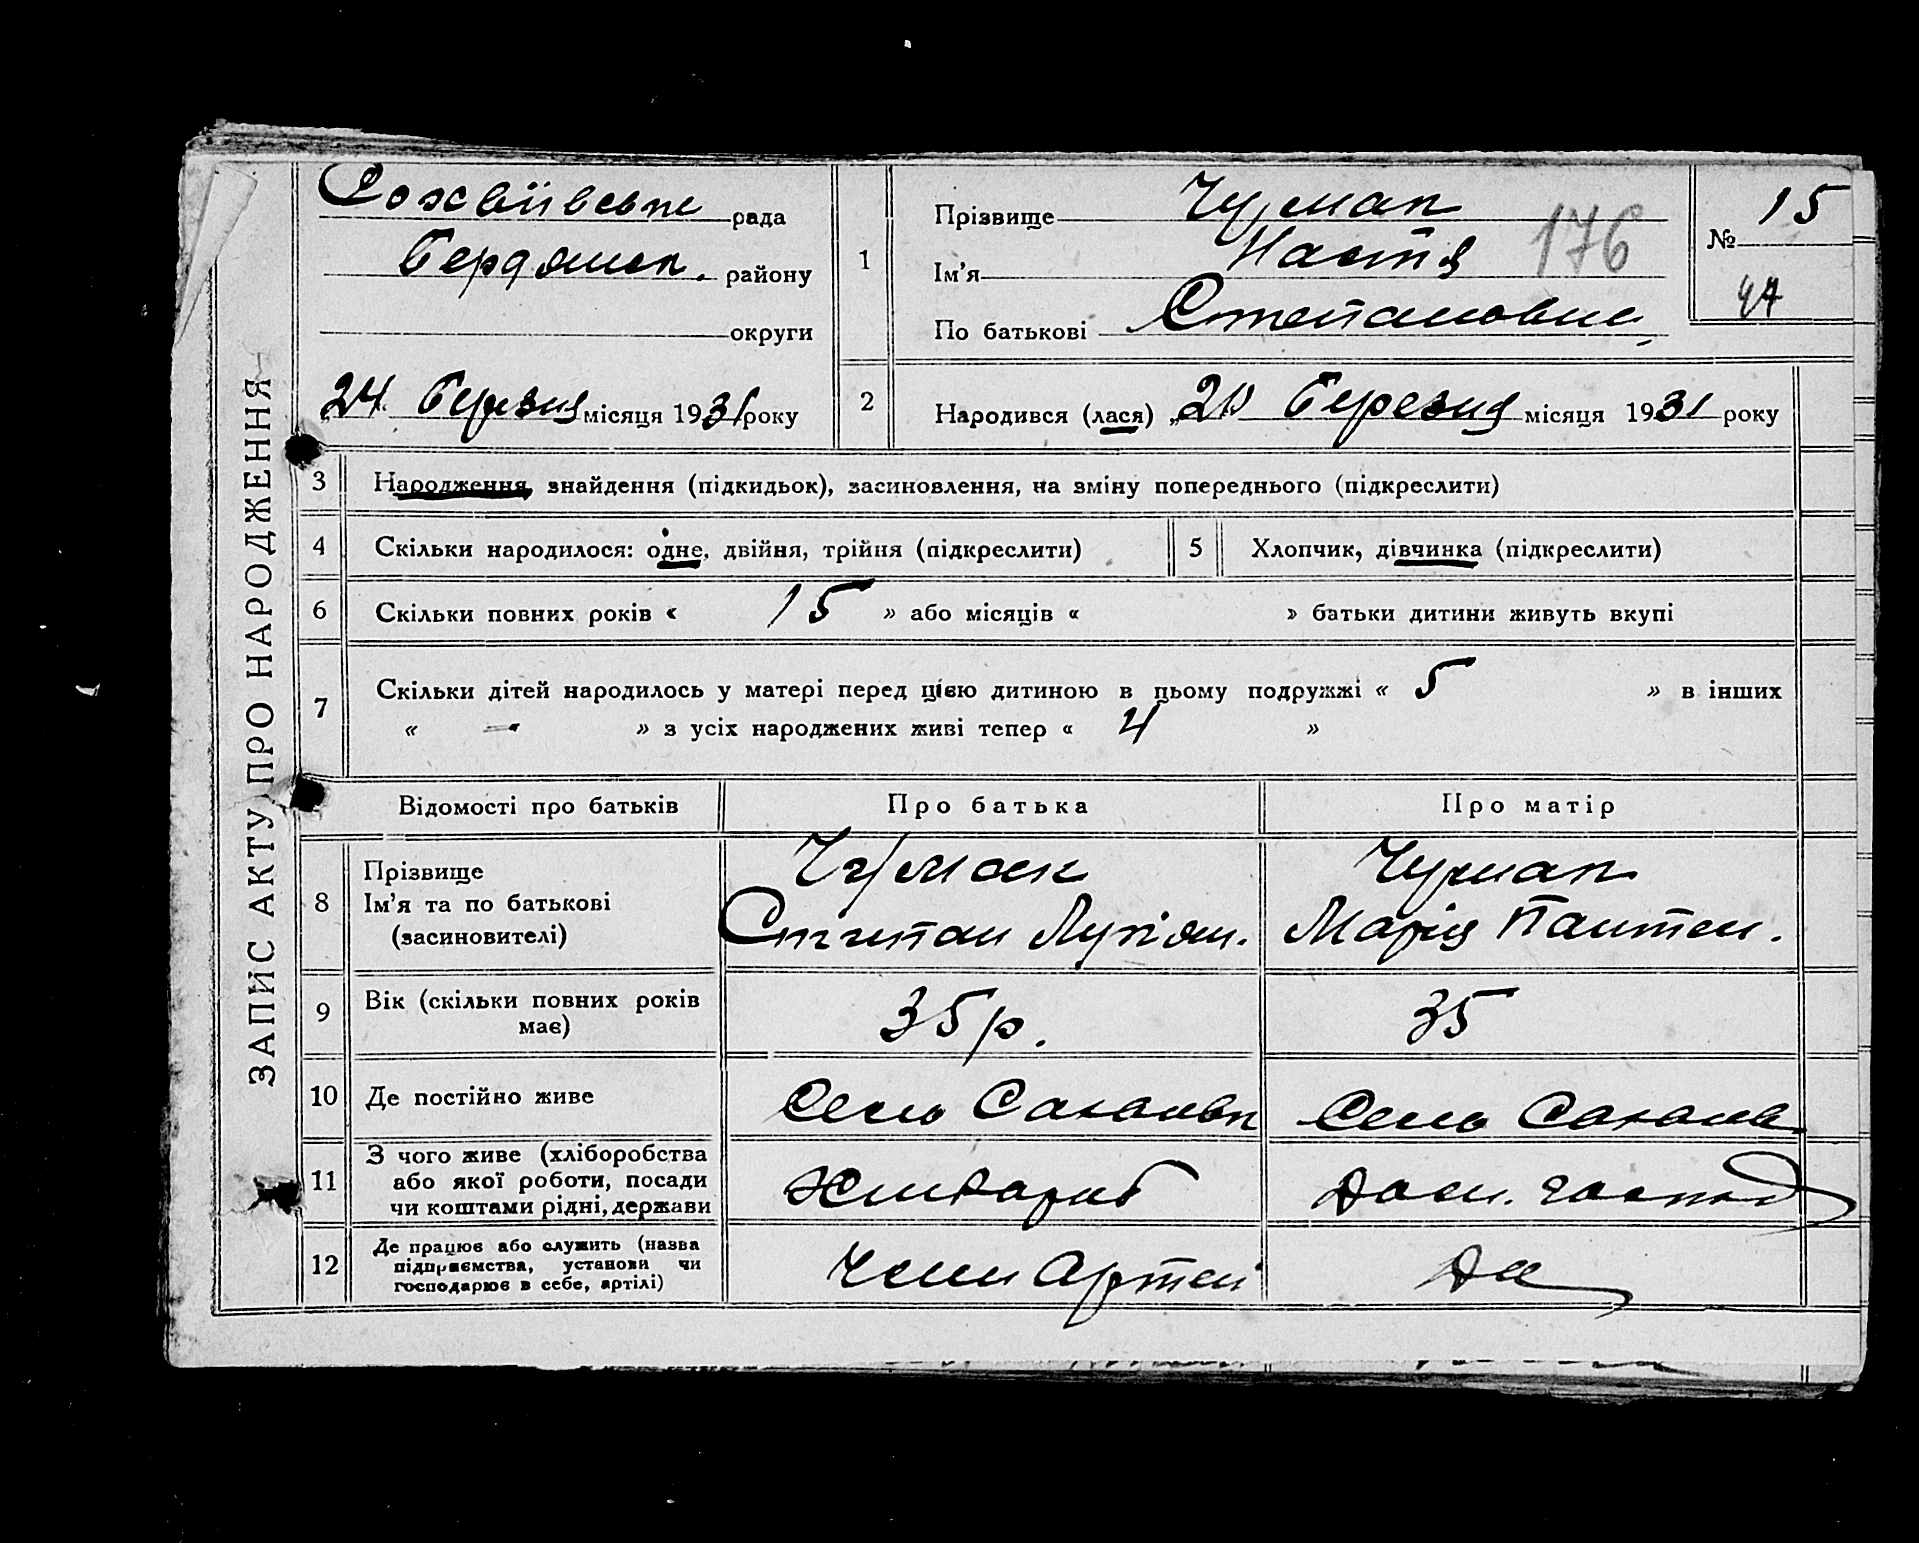 ЗАПИС АКТУ ПРО НАРОДЖЕННЯ
рада
Бердянськ. району
округи
„24“ Березня місяця 1931 року
1
Прізвище Чумак
Ім’я Настя
По батькові Степановна
176
№ 15
47
2
Народився (лася) „20“ Березня місяця 1931 року
3 Народження, знайдення (підкидьок), засиновлення, на зміну попереднього (підкреслити)
4 Скільки народилося: одне, двійня, трійня (підкреслити)
5 Хлопчик, дівчинка (підкреслити)
6 Скільки повних років « 15 » або місяців « » батьки дитини живуть вкупі
7 Скільки дітей народилось у матері перед цією дитиною в цьому подружжі « 5 » в інших
« — » з усіх народжених живі тепер « 4 »
Відомості про батьків Про батька Про матір
8 Прізвище
Ім’я та по батькові
(засиновителі)
Чумак
Степан Лукіян.
Чумак
Марія Пантел.
9 Вік (скільки повних років
має)
35 р.
35
10 Де постійно живе
Село
Село
11 З чого живе (хліборобства
або якої роботи, посади
чи коштами рідні, держави
Хлібороб
Дом. господ
12 Де працює або служить (назва
підприємства, установи чи
господарює в себе, артілі)
Член Артелі